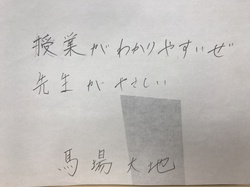 授業がわかりやすいぜ
先生がやさしい
馬場大地